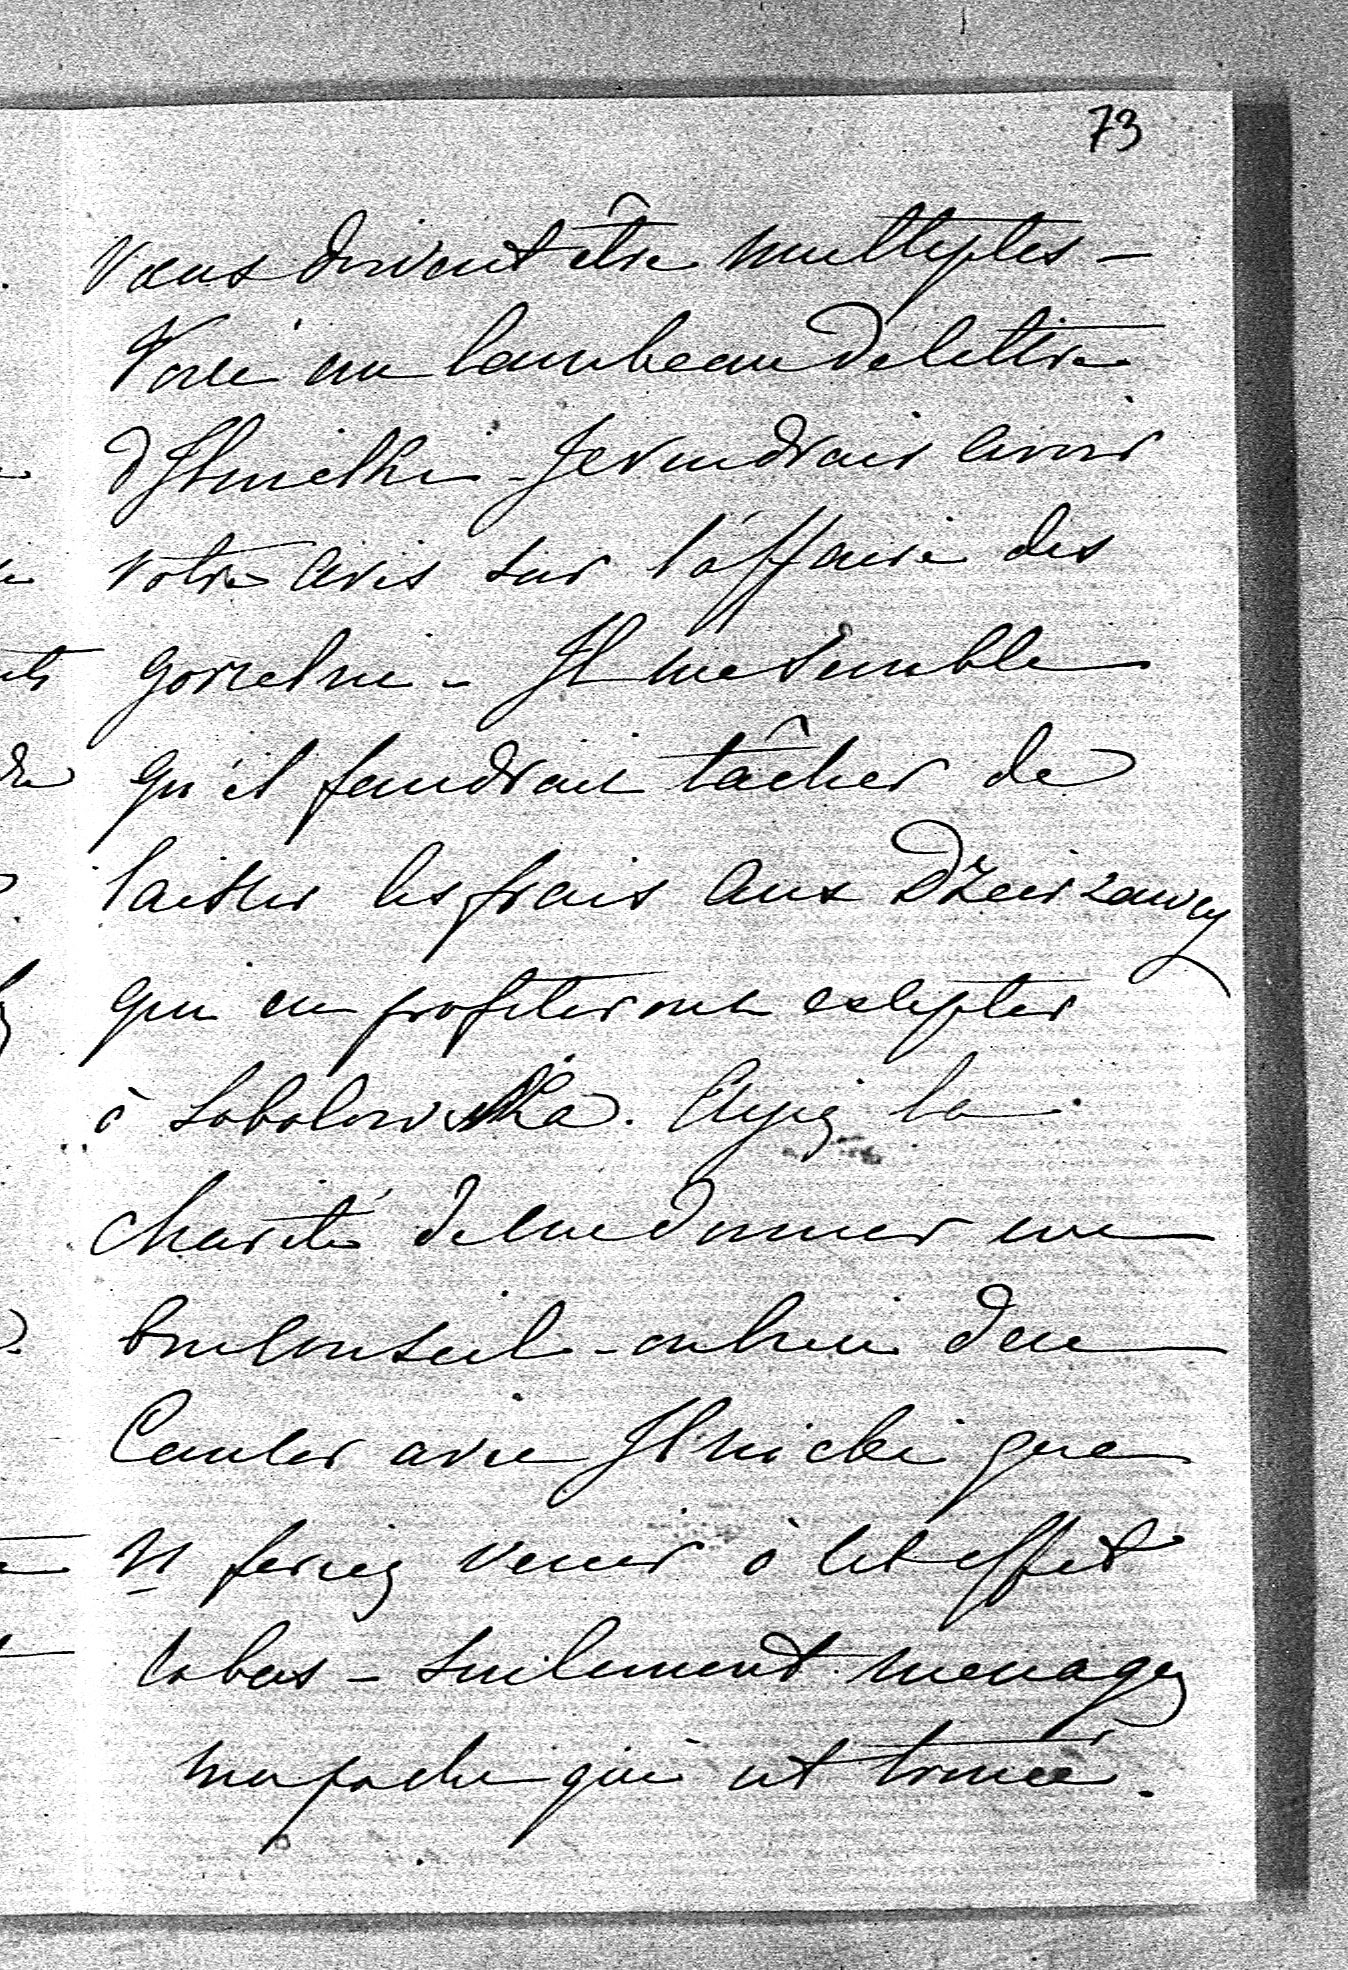 73
vœus doivent être multiples –
Voici un lambeau de lettre
d'Ilnicki – Je voudrais avoir
votre avis sur l'affaire des
gorzelnie – Il me semble
qu'il faudrait tâcher de
laisser les frais aux Dzier
qui en profiteront excepter
à Sobolowska. Ayez la
charité de me donner un
bon conseil – ou bien d'en
Causer avec Ilnicki que
vs feriez venir à cet effet
labas – seulement menagez
ma poche qui est trouée.